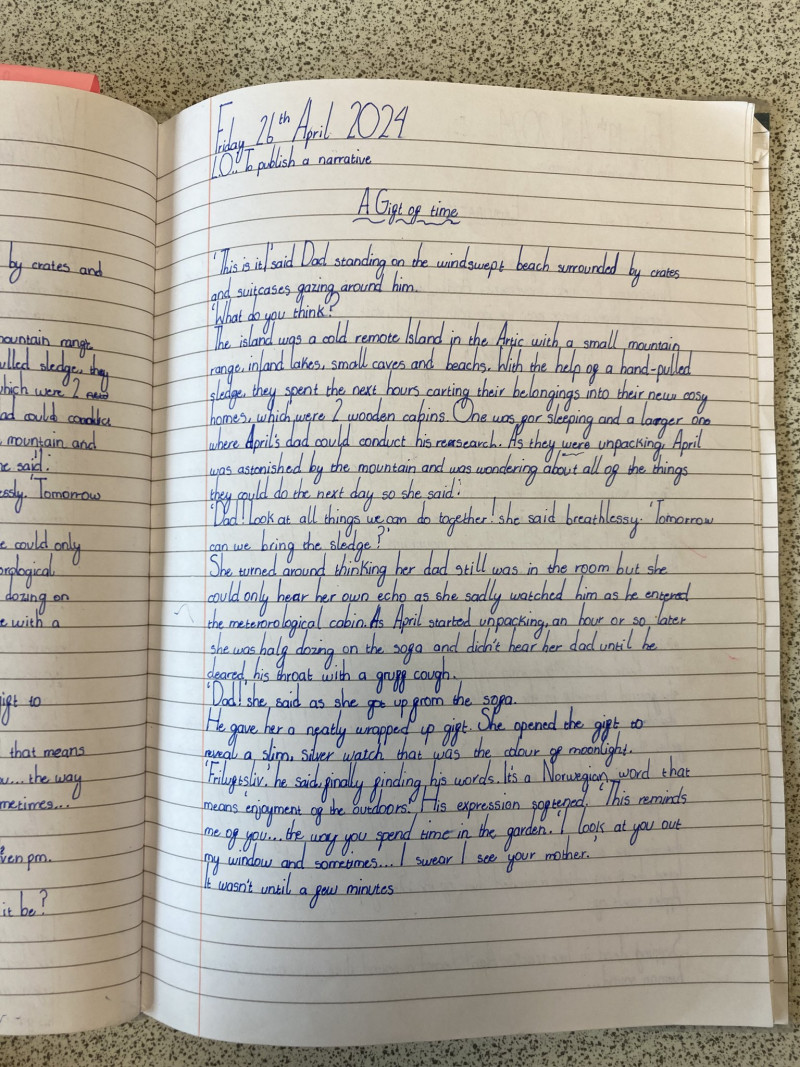 by crates and
ountain range
ulled sledge, they
hich were 2
ad could conduct
mountain and
he said:
essly. 'Tomorrow
e could only
orological
dozing on
e with a
gift to
that means
u... the way
metimes...
ven pm.
it be?
Friday 26th April 2024
L.O.. To publish a narrative
A Gift of time
'This is it!' said Dad standing on the windswept beach surrounded by crates
and suitcases gazing around him.
'What do you think?'
The island was a cold remote Island in the Artic with a small mountain
range, inland lakes, small caves and beachs. With the help of a hand-pulled
sledge, they spent the next hours carting their belongings into their new cosy
homes, which were 2 wooden cabins. One was for sleeping and a larger one
where April's dad could conduct his reasearch. As they were unpacking, April
was astonished by the mountain and was wondering about all of the things
they could do the next day so she said:
'Dad! Look at all things we can do together! she said breathlessy. 'Tomorrow
can we bring the sledge?'
She turned around thinking her dad still was in the room but she
could only hear her own echo as she sadly watched him as he entered
the meterorological cabin. As April started unpacking, an hour or so later
she was half dozing on the sofa and didn't hear her dad until he
cleared his throat with a gruff cough.
'Dad!' she said as she got up from the sofa.
He gave her a neatly wrapped up gift. She opened the gift to
reveal a slim, silver watch that was the colour of moonlight.
'Frilugtsliv.' he said, finally finding his words. It's a Norwegian word that
means 'enjoyment of the outdoors'. His expression softened, 'This reminds
me of you... the way you spend time in the garden. 'I look at you out
my window and sometimes... I swear I see your mother.'
It wasn't until a few minutes